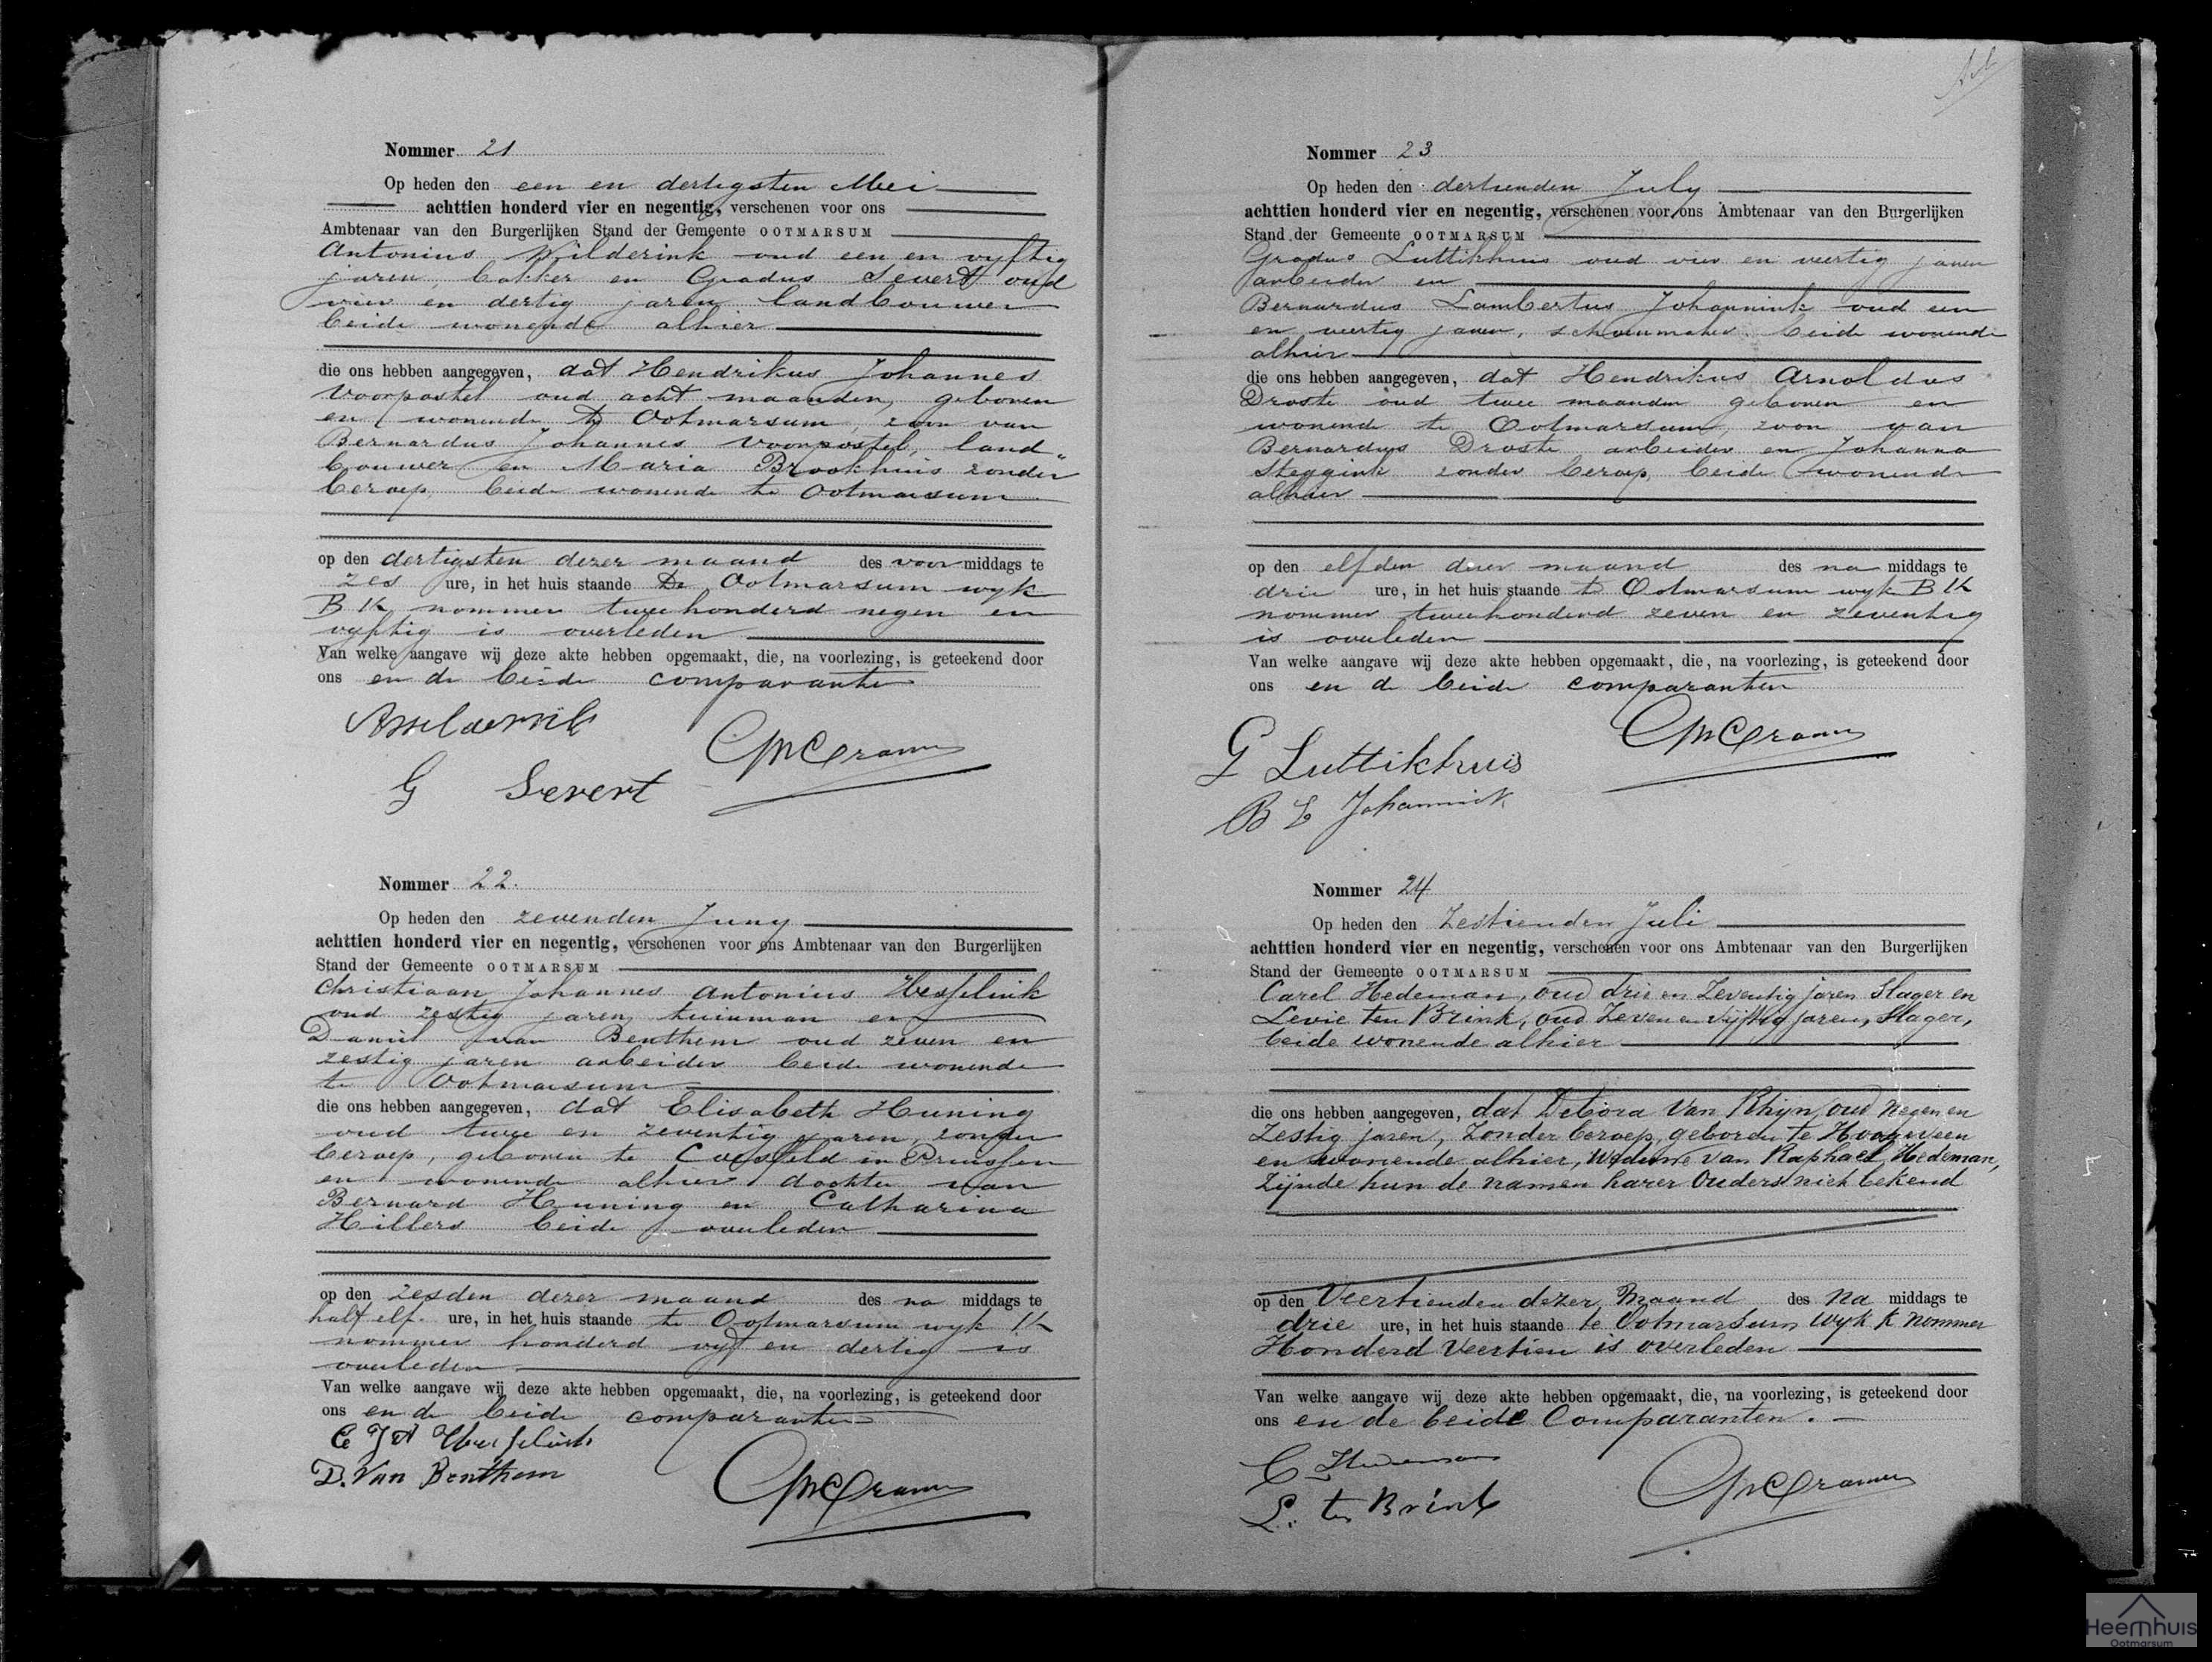 Nommer 21
Op heden den een en dertigsten Mei
achttien honderd vier en negentig, verschenen voor ons
Ambtenaar van den Burgerlijken Stand der Gemeente OOTMARSUM
Antonius Wilderink oud een en vyftig
jaren, bakker en Gradus Severt oud
vier en dertig jaren landbouwer
beide wonende alhier
die ons hebben aangegeven, dat Hendrikus Johannes
Voorpostel oud acht maanden, geboren
en wonende te Ootmarsum, zoon van
Bernardus Johannes Voorpostel, land„
bouwer en Maria Brookhuis zonder
beroep, beide wonende te Ootmarsum
op den dertigsten dezer maand des voor middags te
zes ure, in het huis staande te Ootmarsum wyk
B K nommer tweehonderd negen en
vyftig is overleden
Van welke aangave wij deze akte hebben opgemaakt, die, na voorlezing, is geteekend door
ons en de beide comparanten
G Severt
Nommer 22.
Op heden den zevenden Juny
achttien honderd vier en negentig, verschenen voor ons Ambtenaar van den Burgerlijken
Stand der Gemeente OOTMARSUM
Christiaan Johannes Antonius Hesselink
oud zestig jaren, tuinman en
Daniel van Benthem oud zeven en
zestig jaren arbeider beide wonende
te Ootmarsum
die ons hebben aangegeven, dat Elisabeth Huning
oud twee en zeventig jaren, zonder
beroep, geboren te Coesfeld in Pruissen
en wonende alhier dochter van
Bernard Huning en Catharina
Hillers beide overleden
op den zesden dezer maand des na middags te
half elf ure, in het huis staande te Ootmarsum wyk K
nommer honderd vyf en dertig is
overleden
Van welke aangave wij deze akte hebben opgemaakt, die, na voorlezing, is geteekend door
ons en de beide comparanten
C J A Hesselink
D. Van Benthem
Nommer 23
Op heden den dertienden July
achttien honderd vier en negentig, verschenen voor ons Ambtenaar van den Burgerlijken
Stand der Gemeente OOTMARSUM
Gradus Luttikhuis oud vier en veertig jaren
arbeider en
Bernardus Lambertus Johannink oud een
en veertig jaren, schoenmaker beide wonende
alhier
die ons hebben aangegeven, dat Hendrikus Arnoldus
Droste oud twee maanden geboren en
wonende te Ootmarsum, zoon van
Bernardus Droste arbeider en Johanna
Steggink zonder beroep, beide wonende
alhier
op den elfden dezer maand des na middags te
drie ure, in het huis staande te Ootmarsum wyk B K
nommer tweehonderd zeven en zeventig
is overleden
Van welke aangave wij deze akte hebben opgemaakt, die, na voorlezing, is geteekend door
ons en de beide comparanten
G Luttikhuis
B L Johannink
Nommer 24
Op heden den Zestienden Juli
achttien honderd vier en negentig, verschenen voor ons Ambtenaar van den Burgerlijken
Stand der Gemeente OOTMARSUM
Carel Hedeman, oud drie en Zeventig jaren Slager en
Levie ten Brink, oud Zeven en Vijftig jaren, Slager,
beide wonende alhier
die ons hebben aangegeven, dat Debora Van Rhijn, oud Negen en
Zestig jaren, Zonder beroep, geboren te Hoogeveen
en wonende alhier, Weduwe van Raphael Hedeman,
Zijnde hun de namen harer Ouders niet bekend
op den Veertienden dezer Maand des Na middags te
drie ure, in het huis staande te Ootmarsum Wyk K Nommer
Honderd Veertien is overleden
Van welke aangave wij deze akte hebben opgemaakt, die, na voorlezing, is geteekend door
ons en de beide Comparanten.
C Hedeman
L. ten Brink
Heemhuis
Ootmarsum